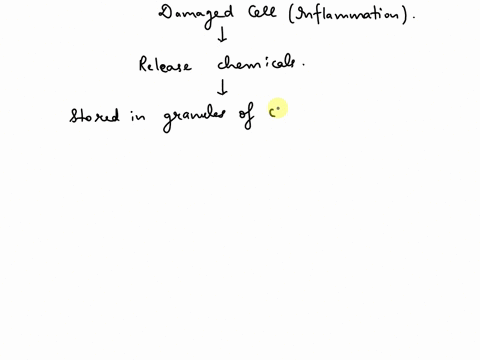 Damaged Cell (Inflammation).
↓
Release chemicals.
↓
Stored in granules of c